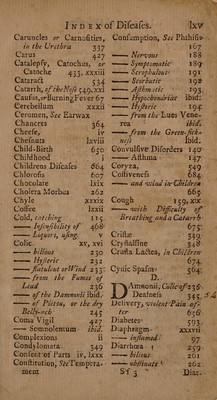 INDEX of Diseases. lxv
Caruncles or Carnosities,
in the Urethra 337
Carus 427
Catalepsy, Catochus, or
Catoche 433, xxxiii
Cataract 534
Catarrh, of the Nose 549, xxi
Causus, or Burning Fever 67
Cerebellum xxxii
Cerumen, See Earwax
Chancres 364
Cheese, iv
Chesnuts xviii
Child-Birth 670
Childhood i
Childrens Diseases 684
Chlorosis 607
Chocolate lxix
Cholera Morbus 262
Chyle xxxix
Coffee lxxii
Cold, catching 114
— Insensibility of 468
— Liquors, using v
Colic. xv, xvi
— bilious 230
— Hysteric 232
— flatulent or Wind 233
— from the Fumes of
Lead 236
— of the Damnonii ibid.
— of Pictou, or the dry
Belly-ach 245
Coma Vigil 427
— Somnolentum ibid.
Complexions ii
Condylomata 349
Consent of Parts iv, lxxx
Constitution, See Tempera-
ment,
Consumption, See Phthisis
167
— Nervous 188
— Symptomatic 189
— Scrophulous 191
— Scorbutic 192
— Asthmatic 193
— Hypochondriac ibid.
— Hysteric 194
— from the Lues Vene-
rea ibid.
— from the Green-sick-
ness ibid.
Convulsive Disorders 140
— Asthma 147
Coryza, 549
Costiveness 684
— and wind in Children
665
Cough 159, xix
— with Difficulty of
Breathing and a Catarrh
675
Cristæ 349
Crystalline 348
Crusta Lactea, in Children
674
Cynic Spasms 564
D.
DAmnonii, Colic of 236
Deafness 545
Delivery, violent Pain af-
ter 656
Diabetes 593
Diaphragm. xxxvii
— inflamed 97
Diarrhœa 259
— bilious 261
— obstinate 262
SY 3 Diar-